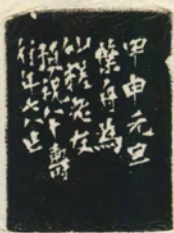 甲申元旦
繫舟為
仙槎老友
預祝八十壽
年六八